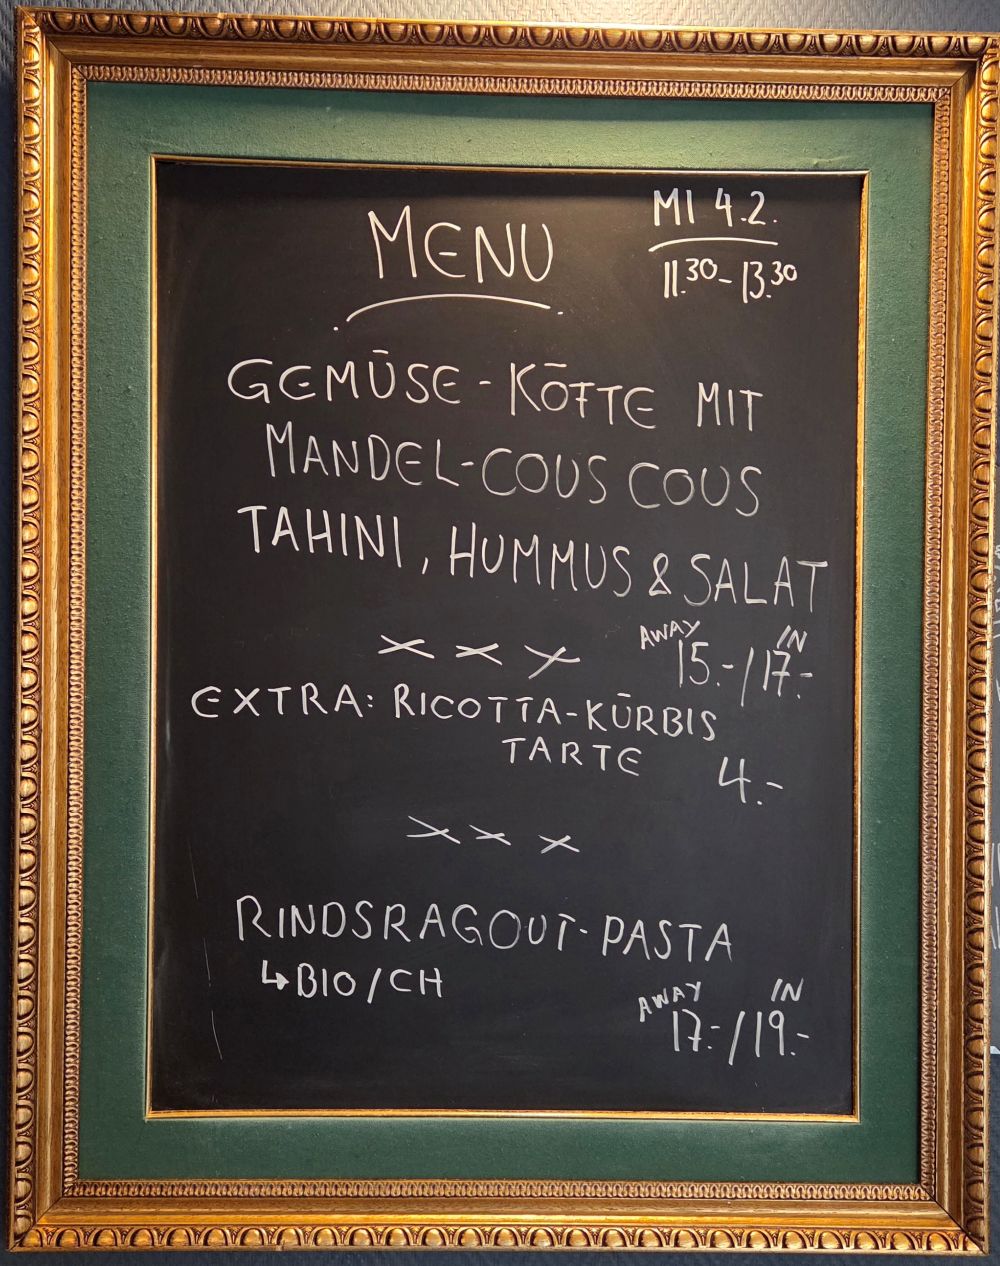 MENU
MI 4.2.
11.30-13.30
GEMÜSE-KÖFTE MIT
MANDEL-COUS COUS
TAHINI, HUMMUS & SALAT
AWAY IN
15.-/17.-
EXTRA: RICOTTA-KÜRBIS
TARTE
4.-
RINDSRAGOUT-PASTA
↳BIO/CH
AWAY IN
17.-/19.-